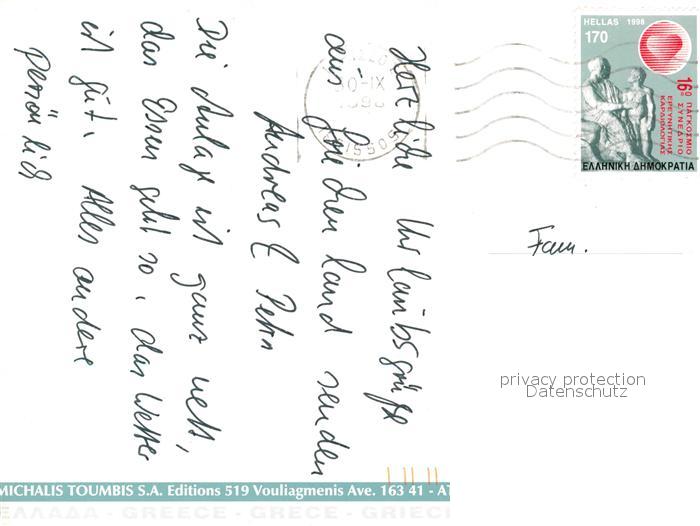 Herzliche Urlaubsgrüße
aus Griechenland senden
Andreas & Petra
Die Anlage ist ganz nett,
das Essen geht so, das Wetter
ist gut. Alles andere
persönlich
HELLAS 1998
170
16º ΠΑΓΚΟΣΜΙΟ
ΣΥΝΕΔΡΙΟ
ΕΡΕΥΝΗΤΙΚΗΣ
ΚΑΡΔΙΟΛΟΓΙΑΣ
ΕΛΛΗΝΙΚΗ ΔΗΜΟΚΡΑΤΙΑ
Fam.
privacy protection
Datenschutz
MICHALIS TOUMBIS S.A. Editions 519 Vouliagmenis Ave. 163 41 -
ΕΛΛΑΔΑ - GREECE - GRECE -